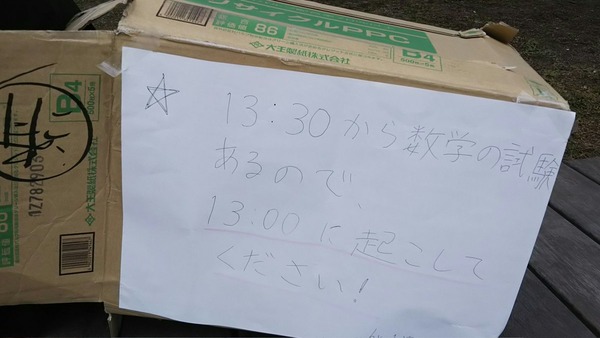 リサイクルPPC
白色
評価値 86
大王製紙株式会社
B4
500枚×5冊
B4
500枚×5冊
大王製紙株式会社
1Z782903
☆ 13:30から数学の試験
あるので、
13:00に起こして
ください!